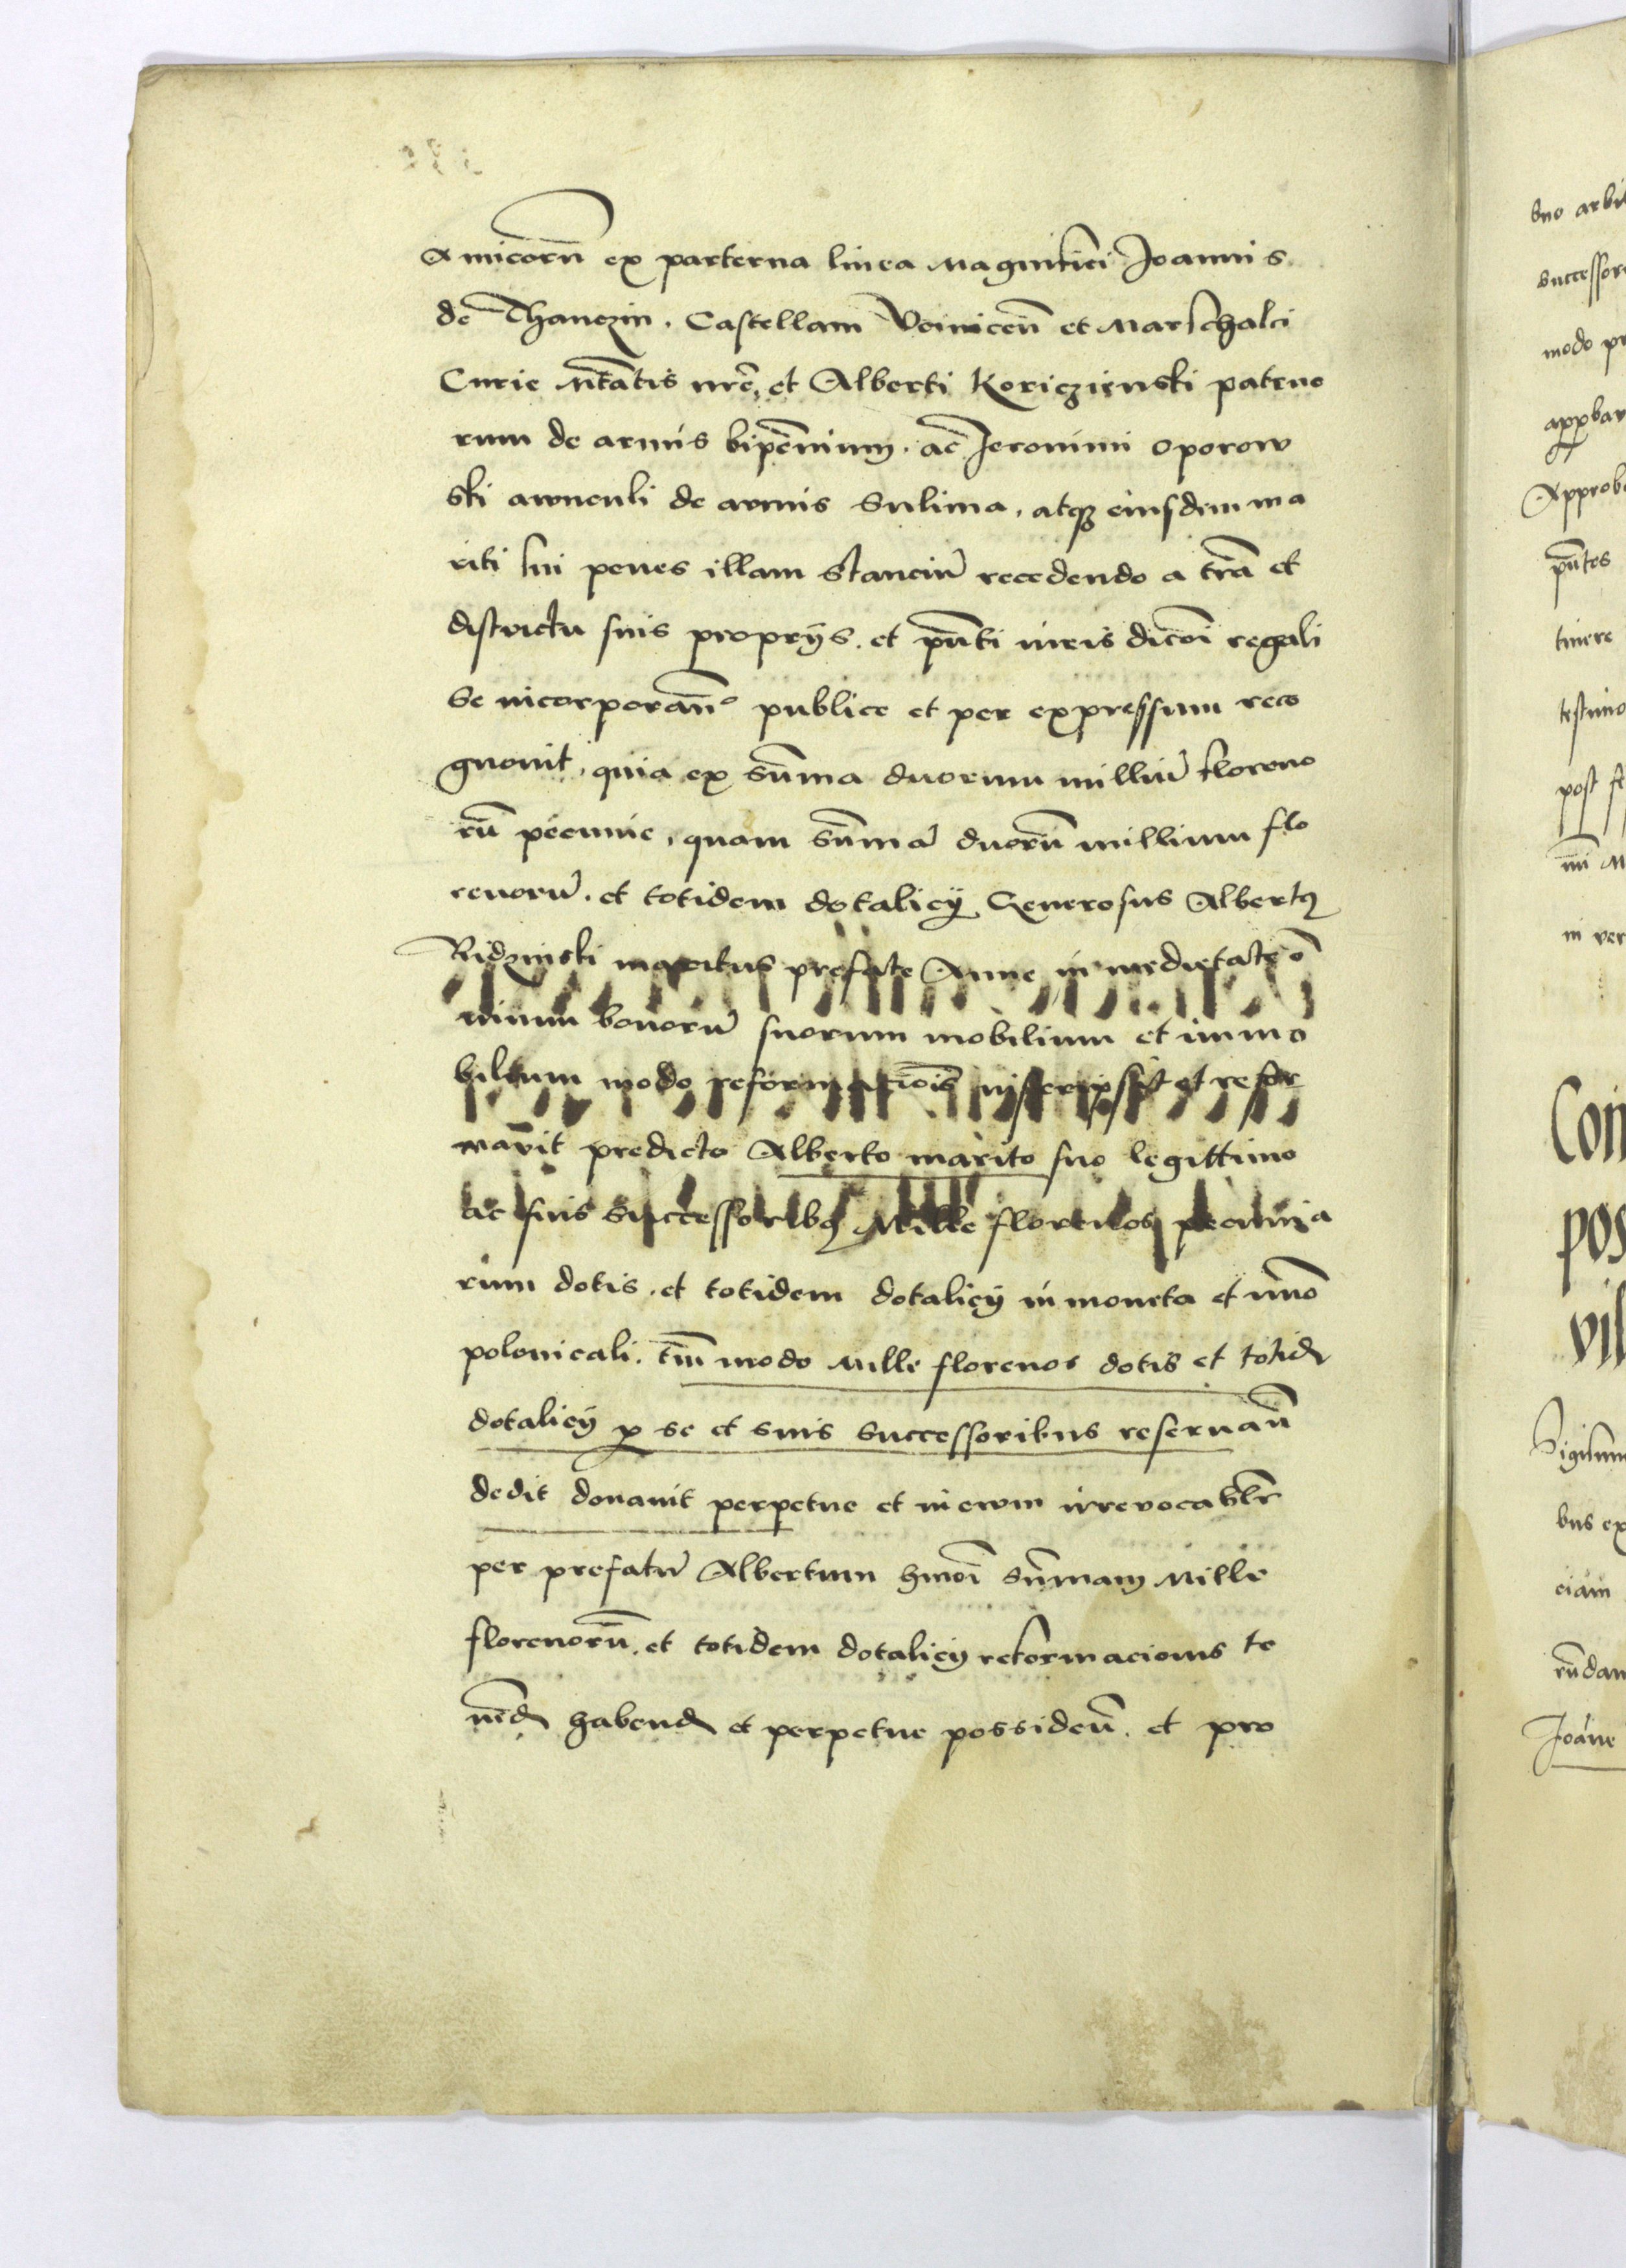 Amicorū ex parterna linea Magnifici Joannis
de Thanczin. Castellani Voinicen̄ et Marschalci
Curie Mtatis nrē, et Alberti Koriczienski patruo
rum de armis bipenium. ac Jeronimi Oporow
ski awnculi de armis Sulima, atq3 eiusdem ma
riti sui penes illam stanciū recedendo a tr̄a et
districtu suis proprijs. et pn̄ti iuris dicōi regali
se incorporan̄o publice et per expressum reco
gnouit, quia ex sūma duorum milliū floreno
rū pecunie, quam sūmā duorū millium flo
renorū. et totidem dotalicij Generosus Albertꝰ
Ridzinski maritus prefate Anne in medietate o
mnium bonorū suorum mobilium et immo
bilium modo reformacōis inscripsit et refor
mauit predicto Alberto marito suo legittimo
ac suis Successoribꝰ Mille florenos pecunia
rum dotis. et totidem dotalicij in moneta et nūo
polonicali. tm̄ modo Mille florenos dotis et totid
dotalicij p se et suis Successoribus reseruan̄
dedit donauit perpetue et in ewm irreuocablr
per prefatū Albertum hmōi sūmam Mille
florenorū. et totidem dotalicij reformacionis te
nēd habend et perpetue possiden̄. et pro
suo arbi
successor
modo pr
approbar
Approb
pn̄tes
tinere
testimo
post
in ver
Con
pos
vil
Sigillum
bus ex
ciam
rūdam
Joāne